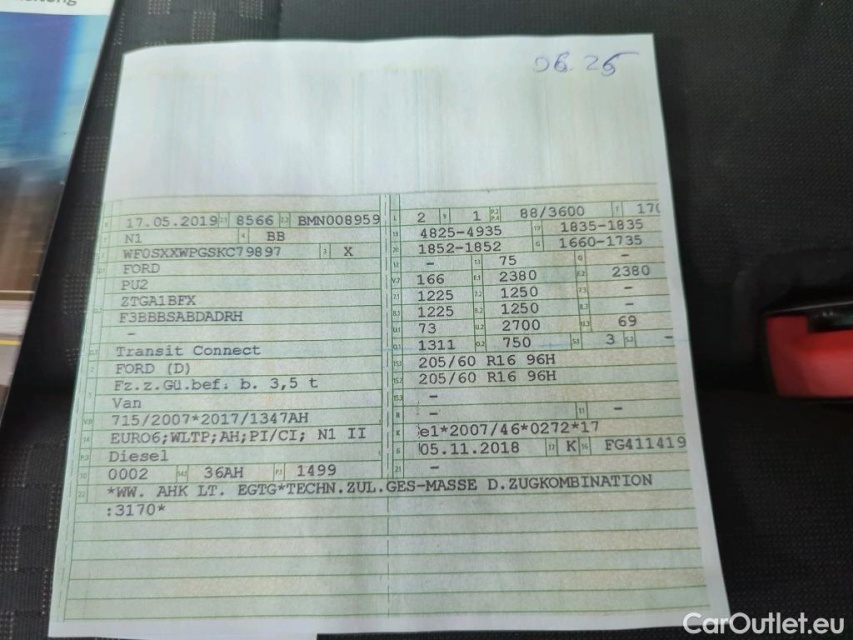 06.25
17.05.2019 8566 BMN008959
N1 BB
WF0SXXWPGSKC79897 X
FORD
PU2
ZTGA1BFX
F3BBBSABDADRH
-
Transit Connect
FORD (D)
Fz.z.Gü.bef. b. 3,5 t
Van
715/2007*2017/1347AH
EURO6;WLTP;AH;PI/CI; N1 II
Diesel
0002 36AH 1499
2 1 88/3600
4825-4935 1835-1835
1852-1852 1660-1735
- 75 -
166 2380 2380
1225 1250 -
1225 1250 -
73 2700 69
1311 750 3 -
205/60 R16 96H
205/60 R16 96H
-
- -
e1*2007/46*0272*17
05.11.2018 K FG411419
-
*WW. AHK LT. EGTG*TECHN.ZUL.GES-MASSE D.ZUGKOMBINATION
:3170*
CarOutlet.eu